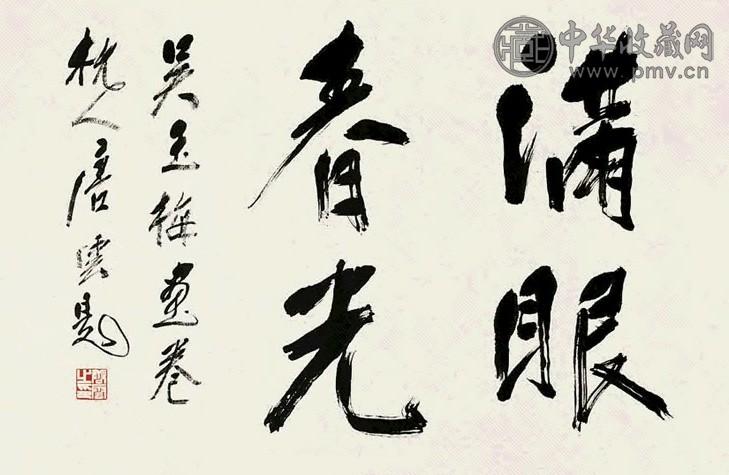 满眼
春光
吴玉梅画卷
杭人唐云题
中华收藏网
www.pmv.cn